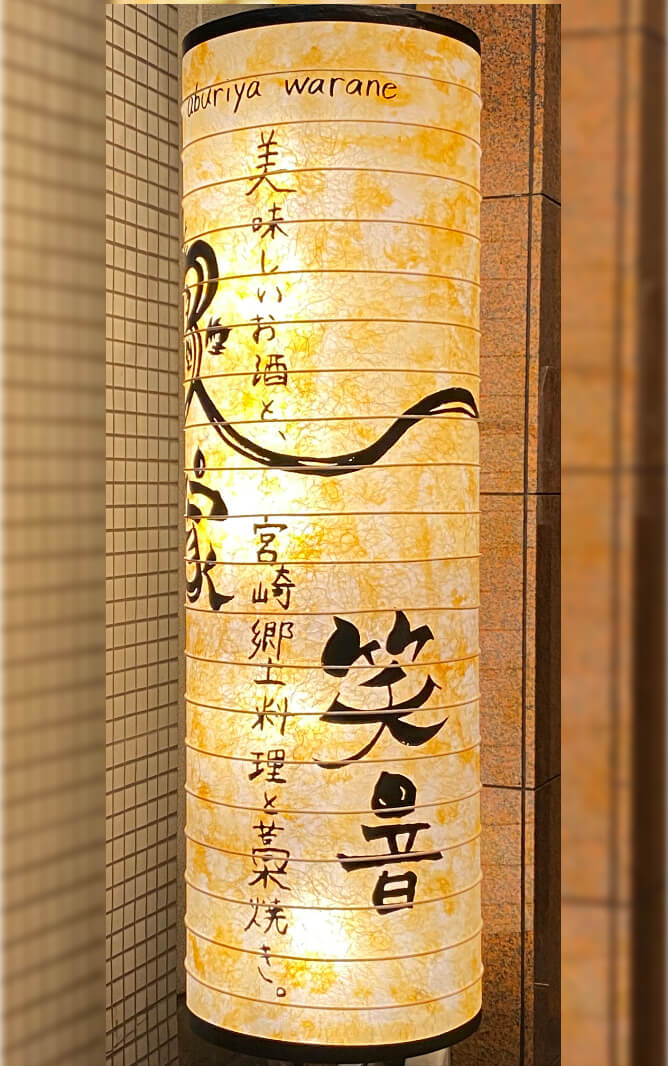 aburiya warane
笑音
美味しいお酒と、宮崎郷土料理と藁焼き。
家